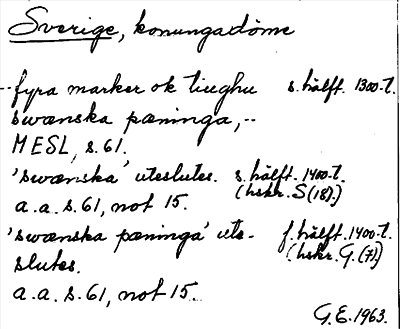 Sverige, konungadöme
--fyra marker ok tiughu s. hälft. 1300-t.
swænska pæninga,--
MESL, s. 61.
'swænska' uteslutes. s. hälft. 1400-t.
(hskr. S (18).)
a.a. s. 61, not 15.
'swænska pæninga' ute- f. hälft. 1400-t.
slutes. (hskr. G. (7).)
a.a. s. 61, not 15.
G.E. 1963.